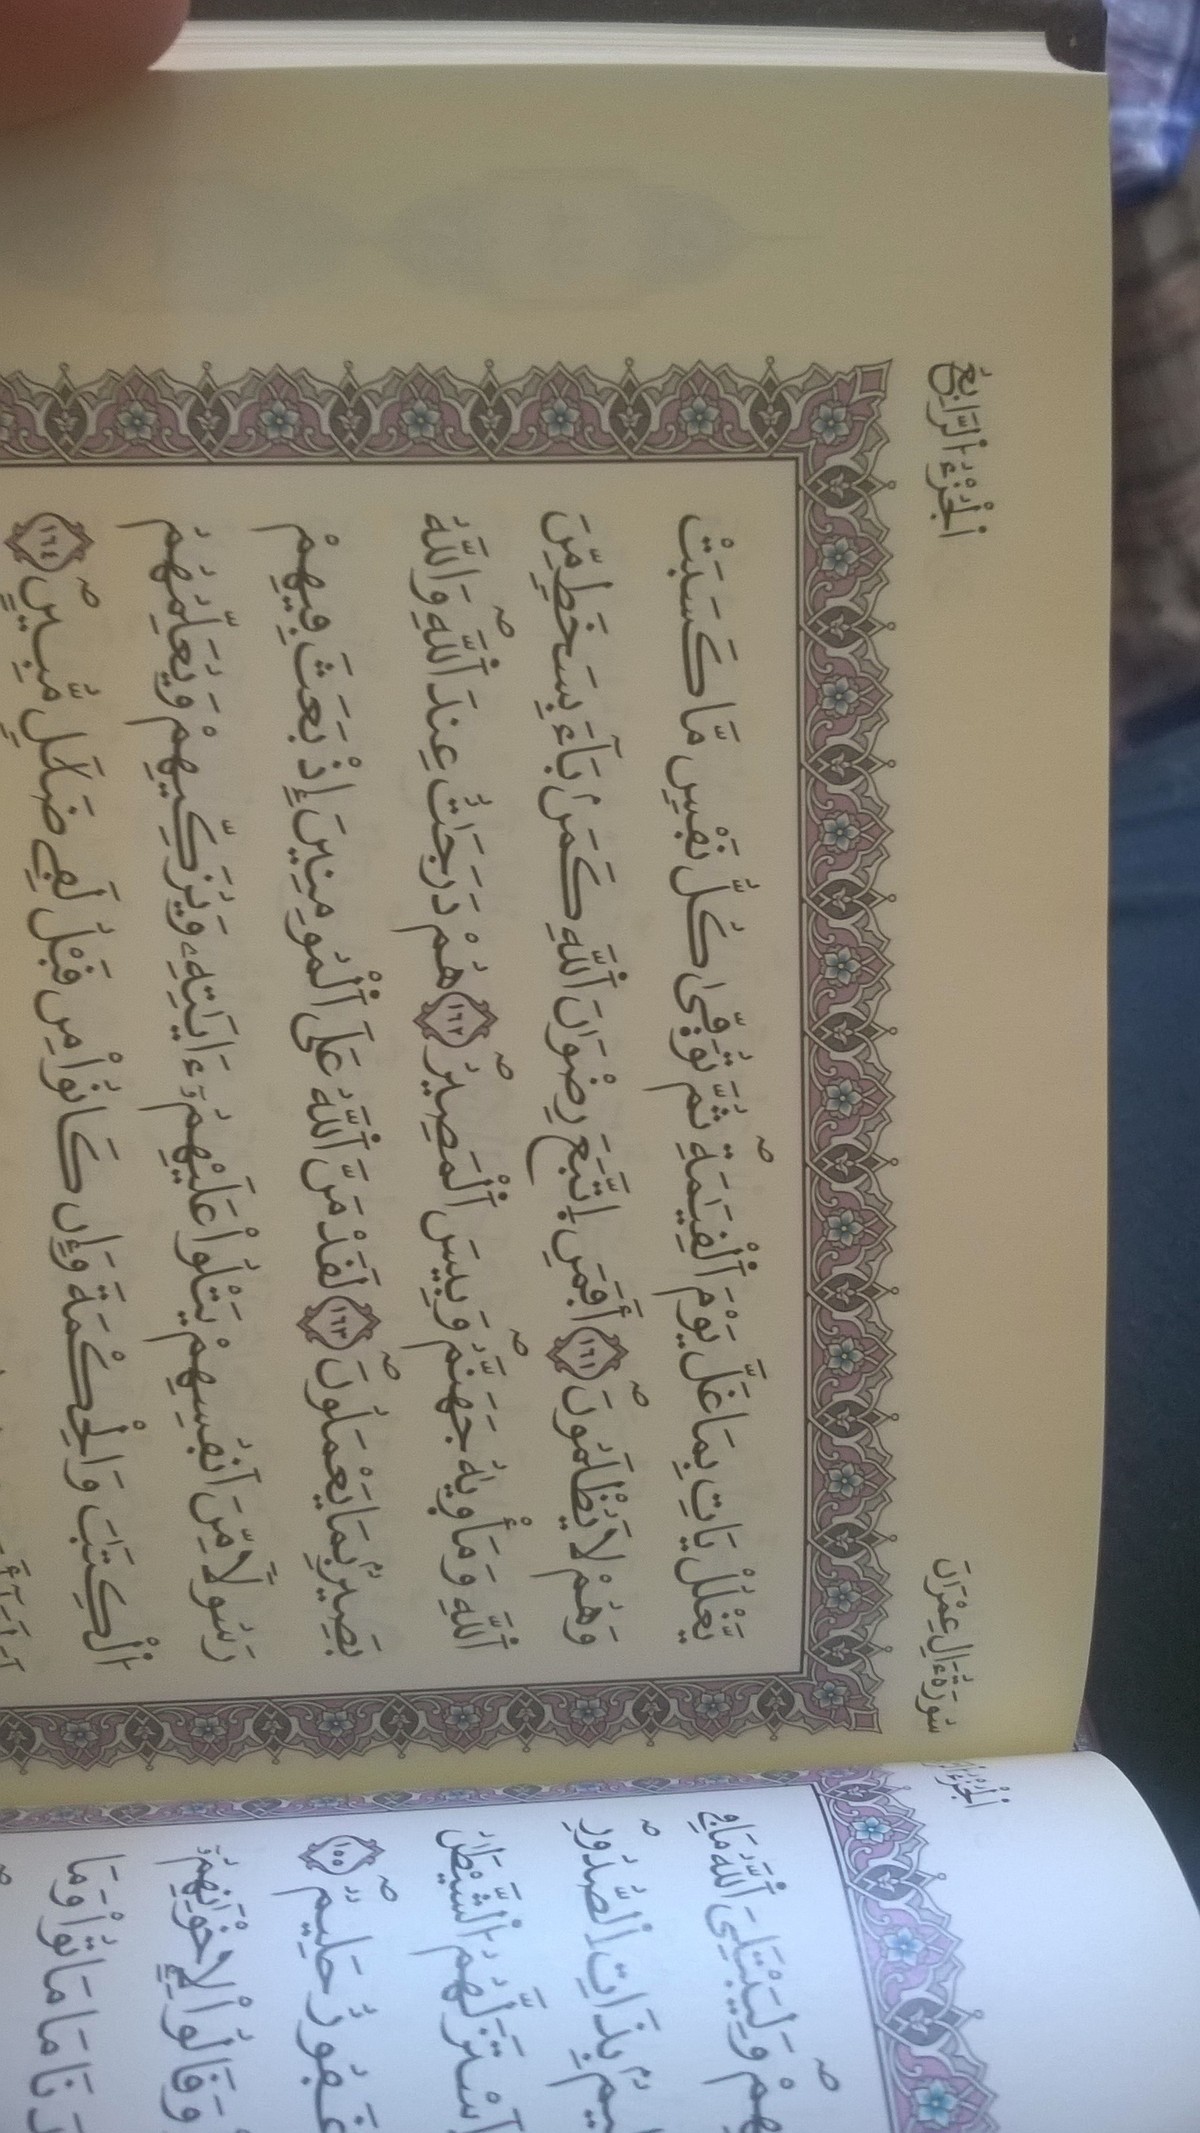 سُورَةُ ءَالِ عِمْرَٰنَ
اَ۬لْجُزْءُ اُ۬لرَّابِعُ
يَّغْلُلْ يَاتِ بِمَا غَلَّ يَوْمَ اَ۬لْقِيَٰمَةِۖ ثُمَّ تُوَفّۭيٰ كُلُّ نَفْسٖ مَّا كَسَبَتْ
وَهُمْ لَا يُظْلَمُونَۖ ١٦١ أَفَمَنِ اِ۪تَّبَعَ رِضْوَٰنَ اَ۬للَّهِ كَمَنۢ بَآءَ بِسَخَطٖ مِّنَ
اَ۬للَّهِ وَمَأْوۭيٰهُ جَهَنَّمُۖ وَبِيسَ اَ۬لْمَصِيرُۖ ١٦٢ هُمْ دَرَجَٰتٌ عِندَ اَ۬للَّهِۖ وَاللَّهُ
بَصِيرُۢ بِمَا يَعْمَلُونَۖ ١٦٣ لَقَدْ مَنَّ اَ۬للَّهُ عَلَي اَ۬لْمُومِنِينَ إِذْ بَعَثَ فِيهِمْ
رَسُولاٗ مِّنَ اَنفُسِهِمْ يَتْلُواْ عَلَيْهِمُۥٓ ءَايَٰتِهِۦ وَيُزَكِّيهِمْ وَيُعَلِّمُهُمُ
اُ۬لْكِتَٰبَ وَالْحِكْمَةَ وَإِن كَانُواْ مِن قَبْلُ لَفِے ضَلَٰلٖ مُّبِينٍۖ ١٦٤
اَ۬لْجُزْءُ
وَلِيَبْتَلِيَ اَ۬للَّهُ مَا فِے
بِذَاتِ اِ۬لصُّدُورِۖ
اَ۪سْتَزَلَّهُمُ اُ۬لشَّيْطَٰنُ
غَفُورٌ حَلِيمٞۖ ١٥٥
وَقَالُواْ لِإِخْوَٰنِهِمُۥٓ
مَا مَاتُواْ وَمَا